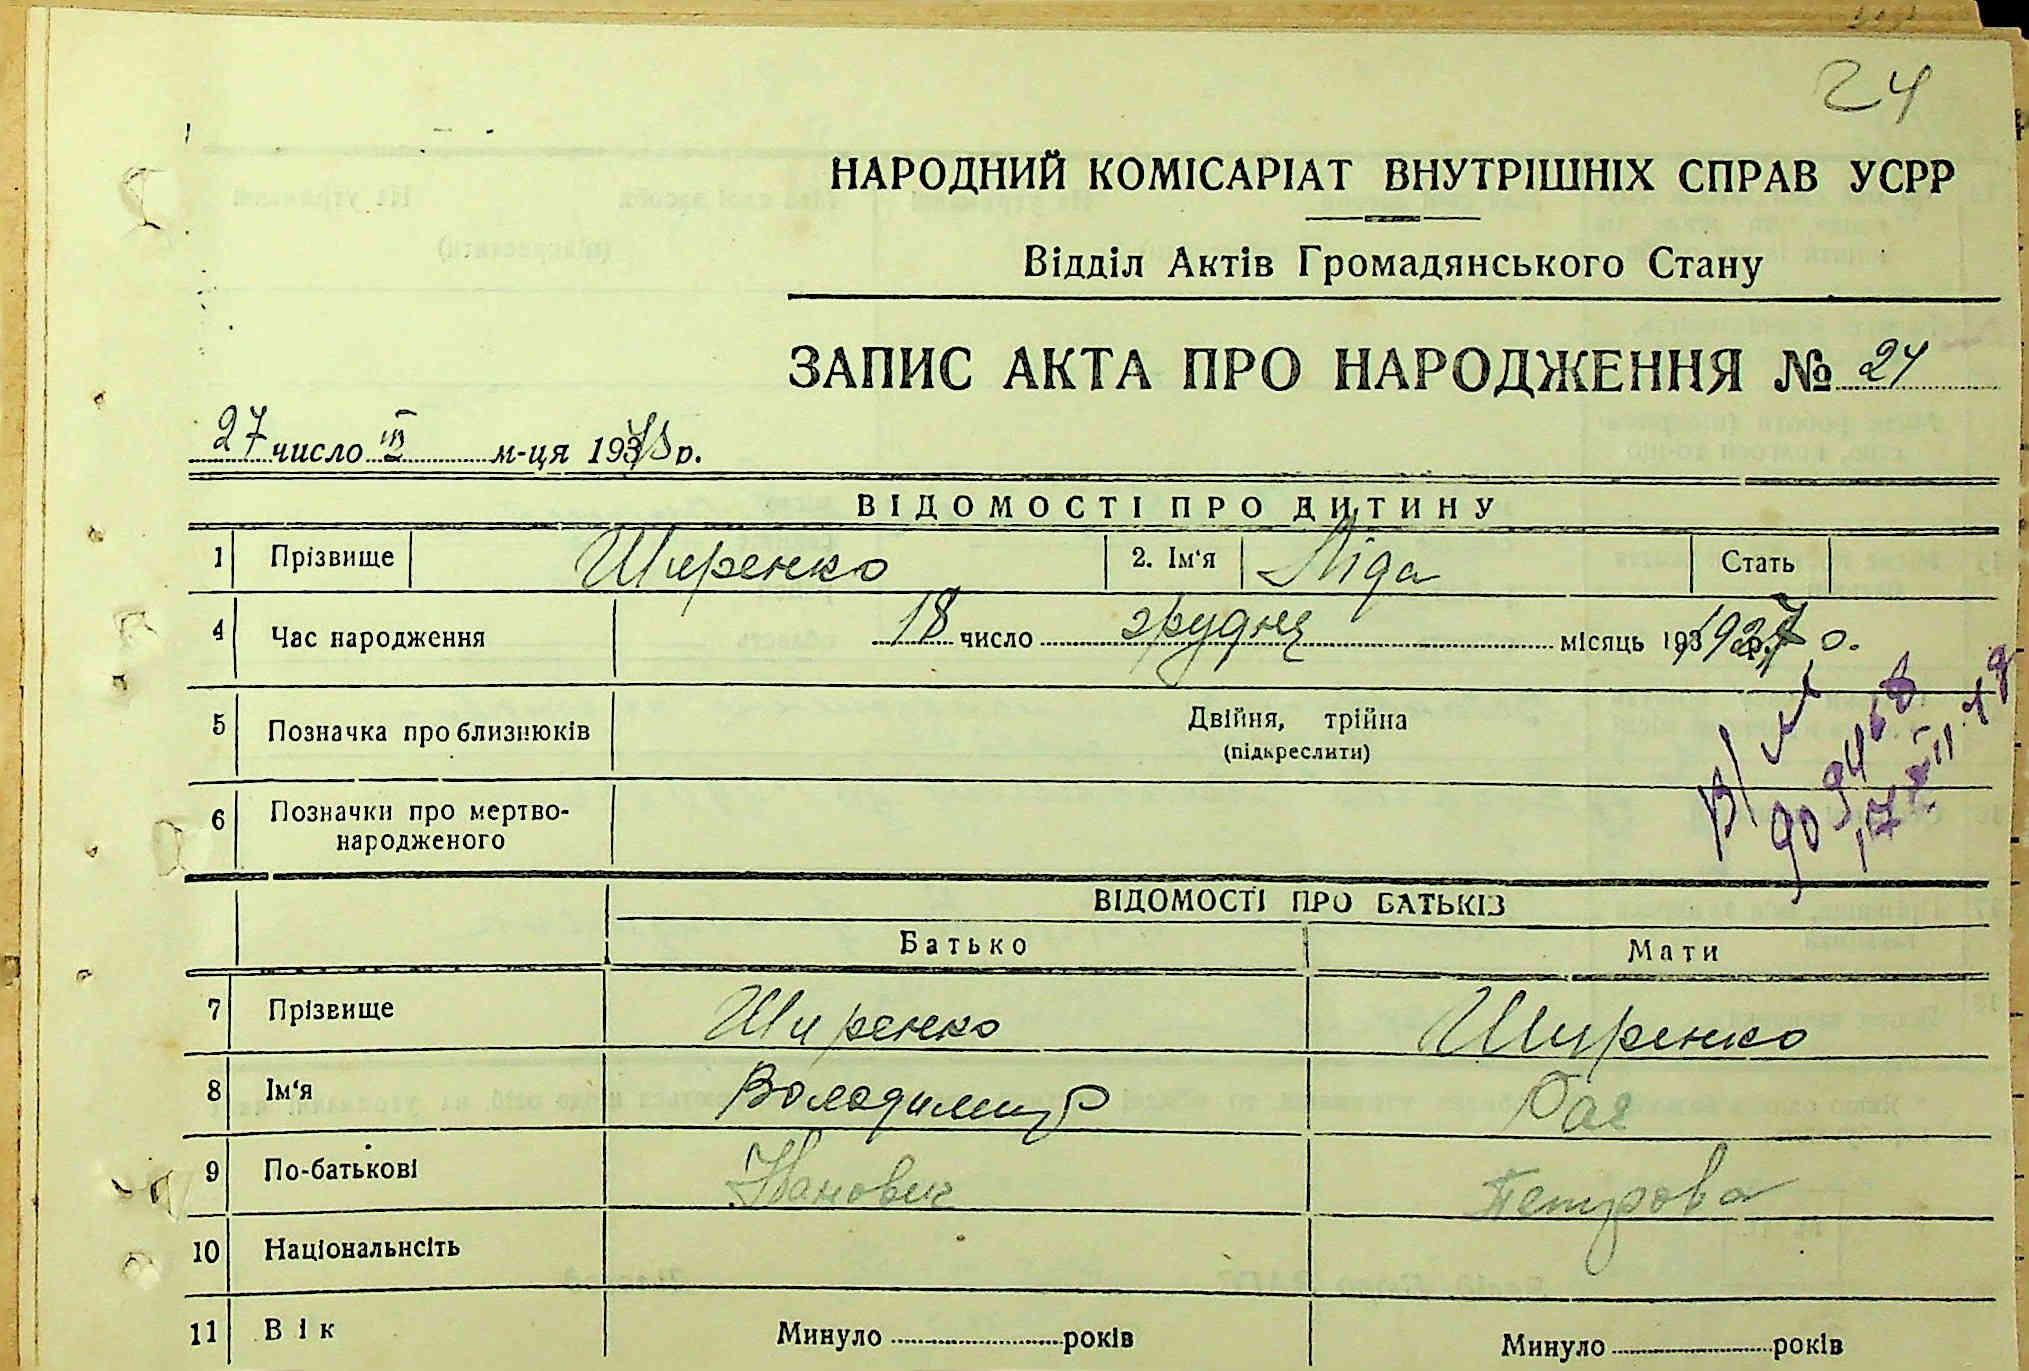 24
НАРОДНИЙ КОМІСАРІАТ ВНУТРІШНІХ СПРАВ УСРР
Відділ Актів Громадянського Стану
ЗАПИС АКТА ПРО НАРОДЖЕННЯ № 24
27 число III м-ця 1943 р.
ВІДОМОСТІ ПРО ДИТИНУ
1 Прізвище Ширенко 2. Ім'я Ліда Стать
4 Час народження 18 число грудня місяць 193 1927 р.
5 Позначка про близнюків Двійня, трійна
(підкреслити)
6 Позначки про мертво-
народженого
ВІДОМОСТІ ПРО БАТЬКІВ
Батько Мати
7 Прізвище Ширенко Ширенко
8 Ім'я Володимир Рая
9 По-батькові Иванович Петрова
10 Національнсіть
11 Вік Минуло років Минуло років